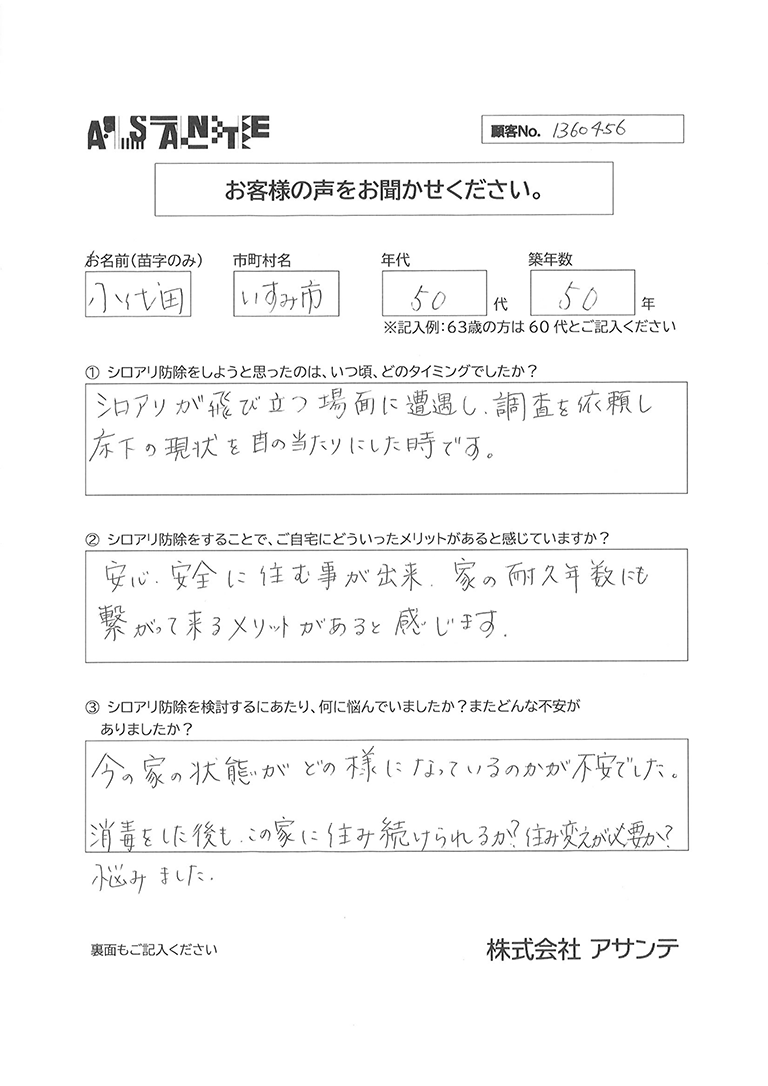 ASANTE
顧客No. 1360456
お客様の声をお聞かせください。
お名前(苗字のみ) 市町村名 年代 築年数
小代田 いすみ市 50 代 50 年
※記入例:63歳の方は60代とご記入ください
① シロアリ防除をしようと思ったのは、いつ頃、どのタイミングでしたか?
シロアリが飛び立つ場面に遭遇し、調査を依頼し
床下の現状を目の当たりにした時です。
② シロアリ防除をすることで、ご自宅にどういったメリットがあると感じていますか?
安心、安全に住む事が出来、家の耐久年数にも
繋がって来るメリットがあると感じます。
③ シロアリ防除を検討するにあたり、何に悩んでいましたか?またどんな不安が
ありましたか?
今の家の状態がどの様になっているのかが不安でした。
消毒をした後も、この家に住み続けられるか?住み変えが必要か?
悩みました。
裏面もご記入ください 株式会社 アサンテ